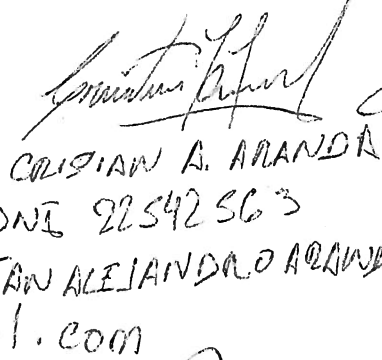 CRISIAN A. ARANDA
DNI 22542563
TAN ALEJANDRO ARAND
l.com